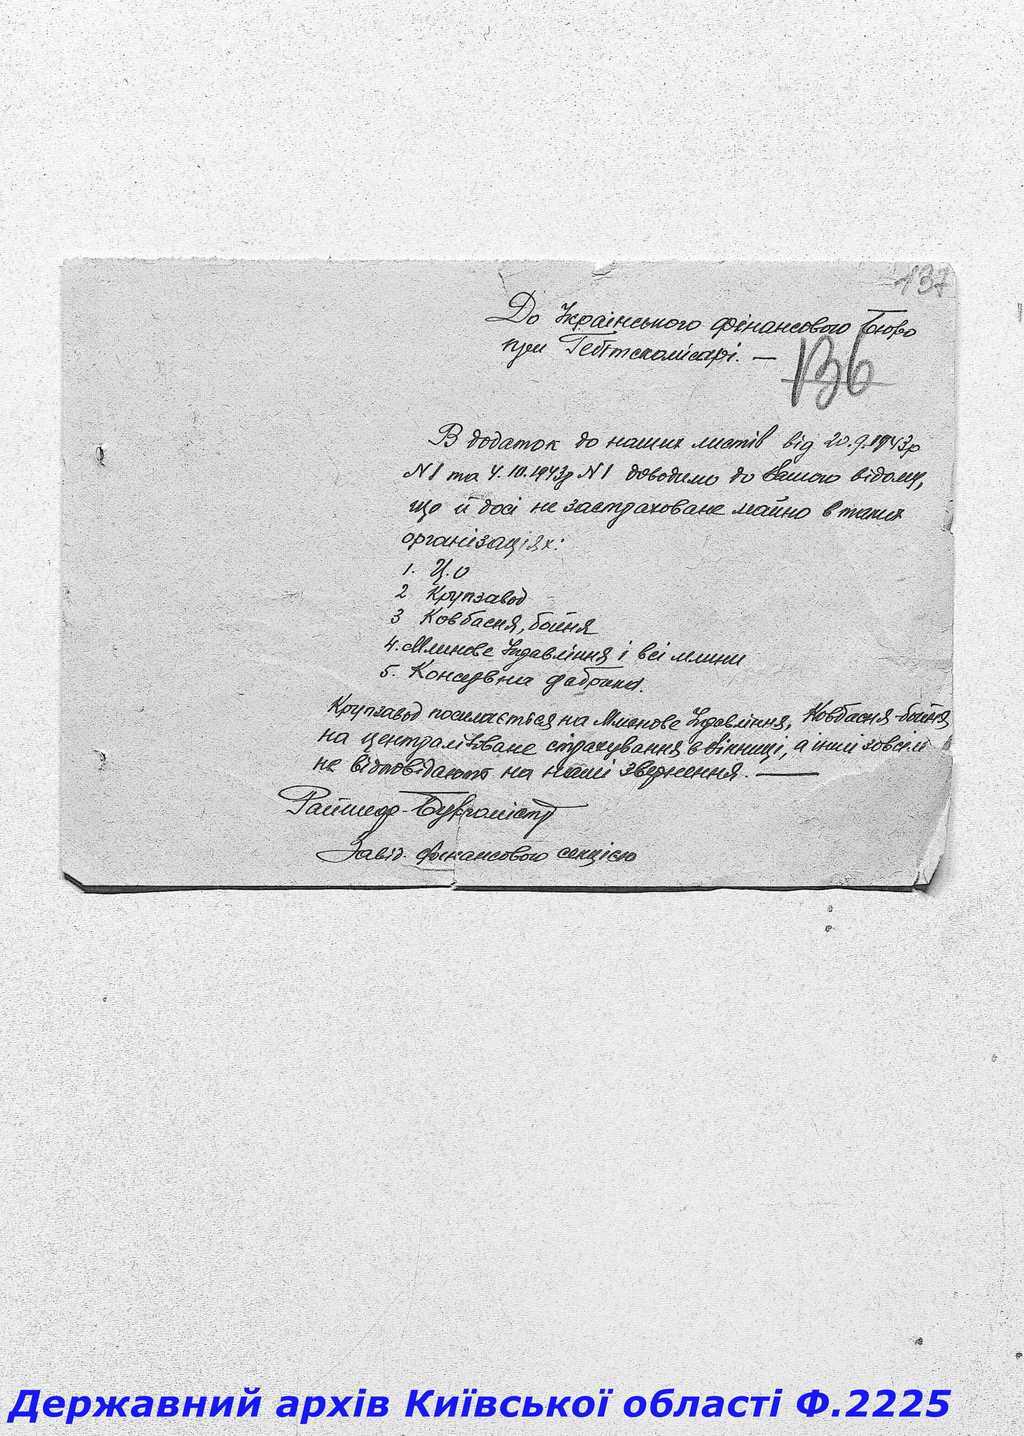 137
До Українського фінансового Бюро
при Гебітскомісарі. —
136
В додаток до наших листів від 20.9.1943р
N1 та 4.10.1943р N1 доводимо до Вашого відому,
що й досі не застраховане майно в таких
організаціях:
1. Ц.О
2 Крупзавод
3 Ковбасня, бойня
4. Млинове Управління і всі млини
5. Консервна фабрика.
Крупзавод посилається на Млинове Управління, Ковбасня-бойня
на централізоване страхування в Вінниці, а інші зовсім
не відповідають на наші звернення. —
Райшеф-Бургомістр
Завід. фінансовою секцією
Державний архів Київської області Ф.2225